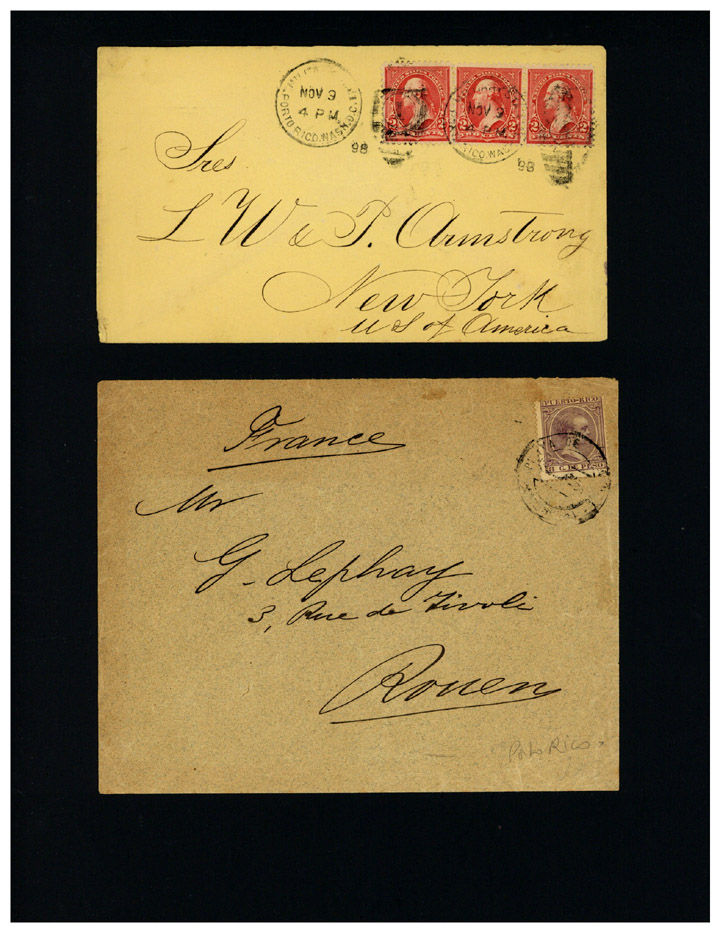 NOV 9
4 PM
PORTO RICO, WASH, D.C.
98
NOV 9
98
Sres
L W & P. Armstrong
New York
U S of America
PUERTO-RICO
PLAYA DE
France
Mr
G. Lephay
3, Rue de Tivoli
Rouen
Porto Rico